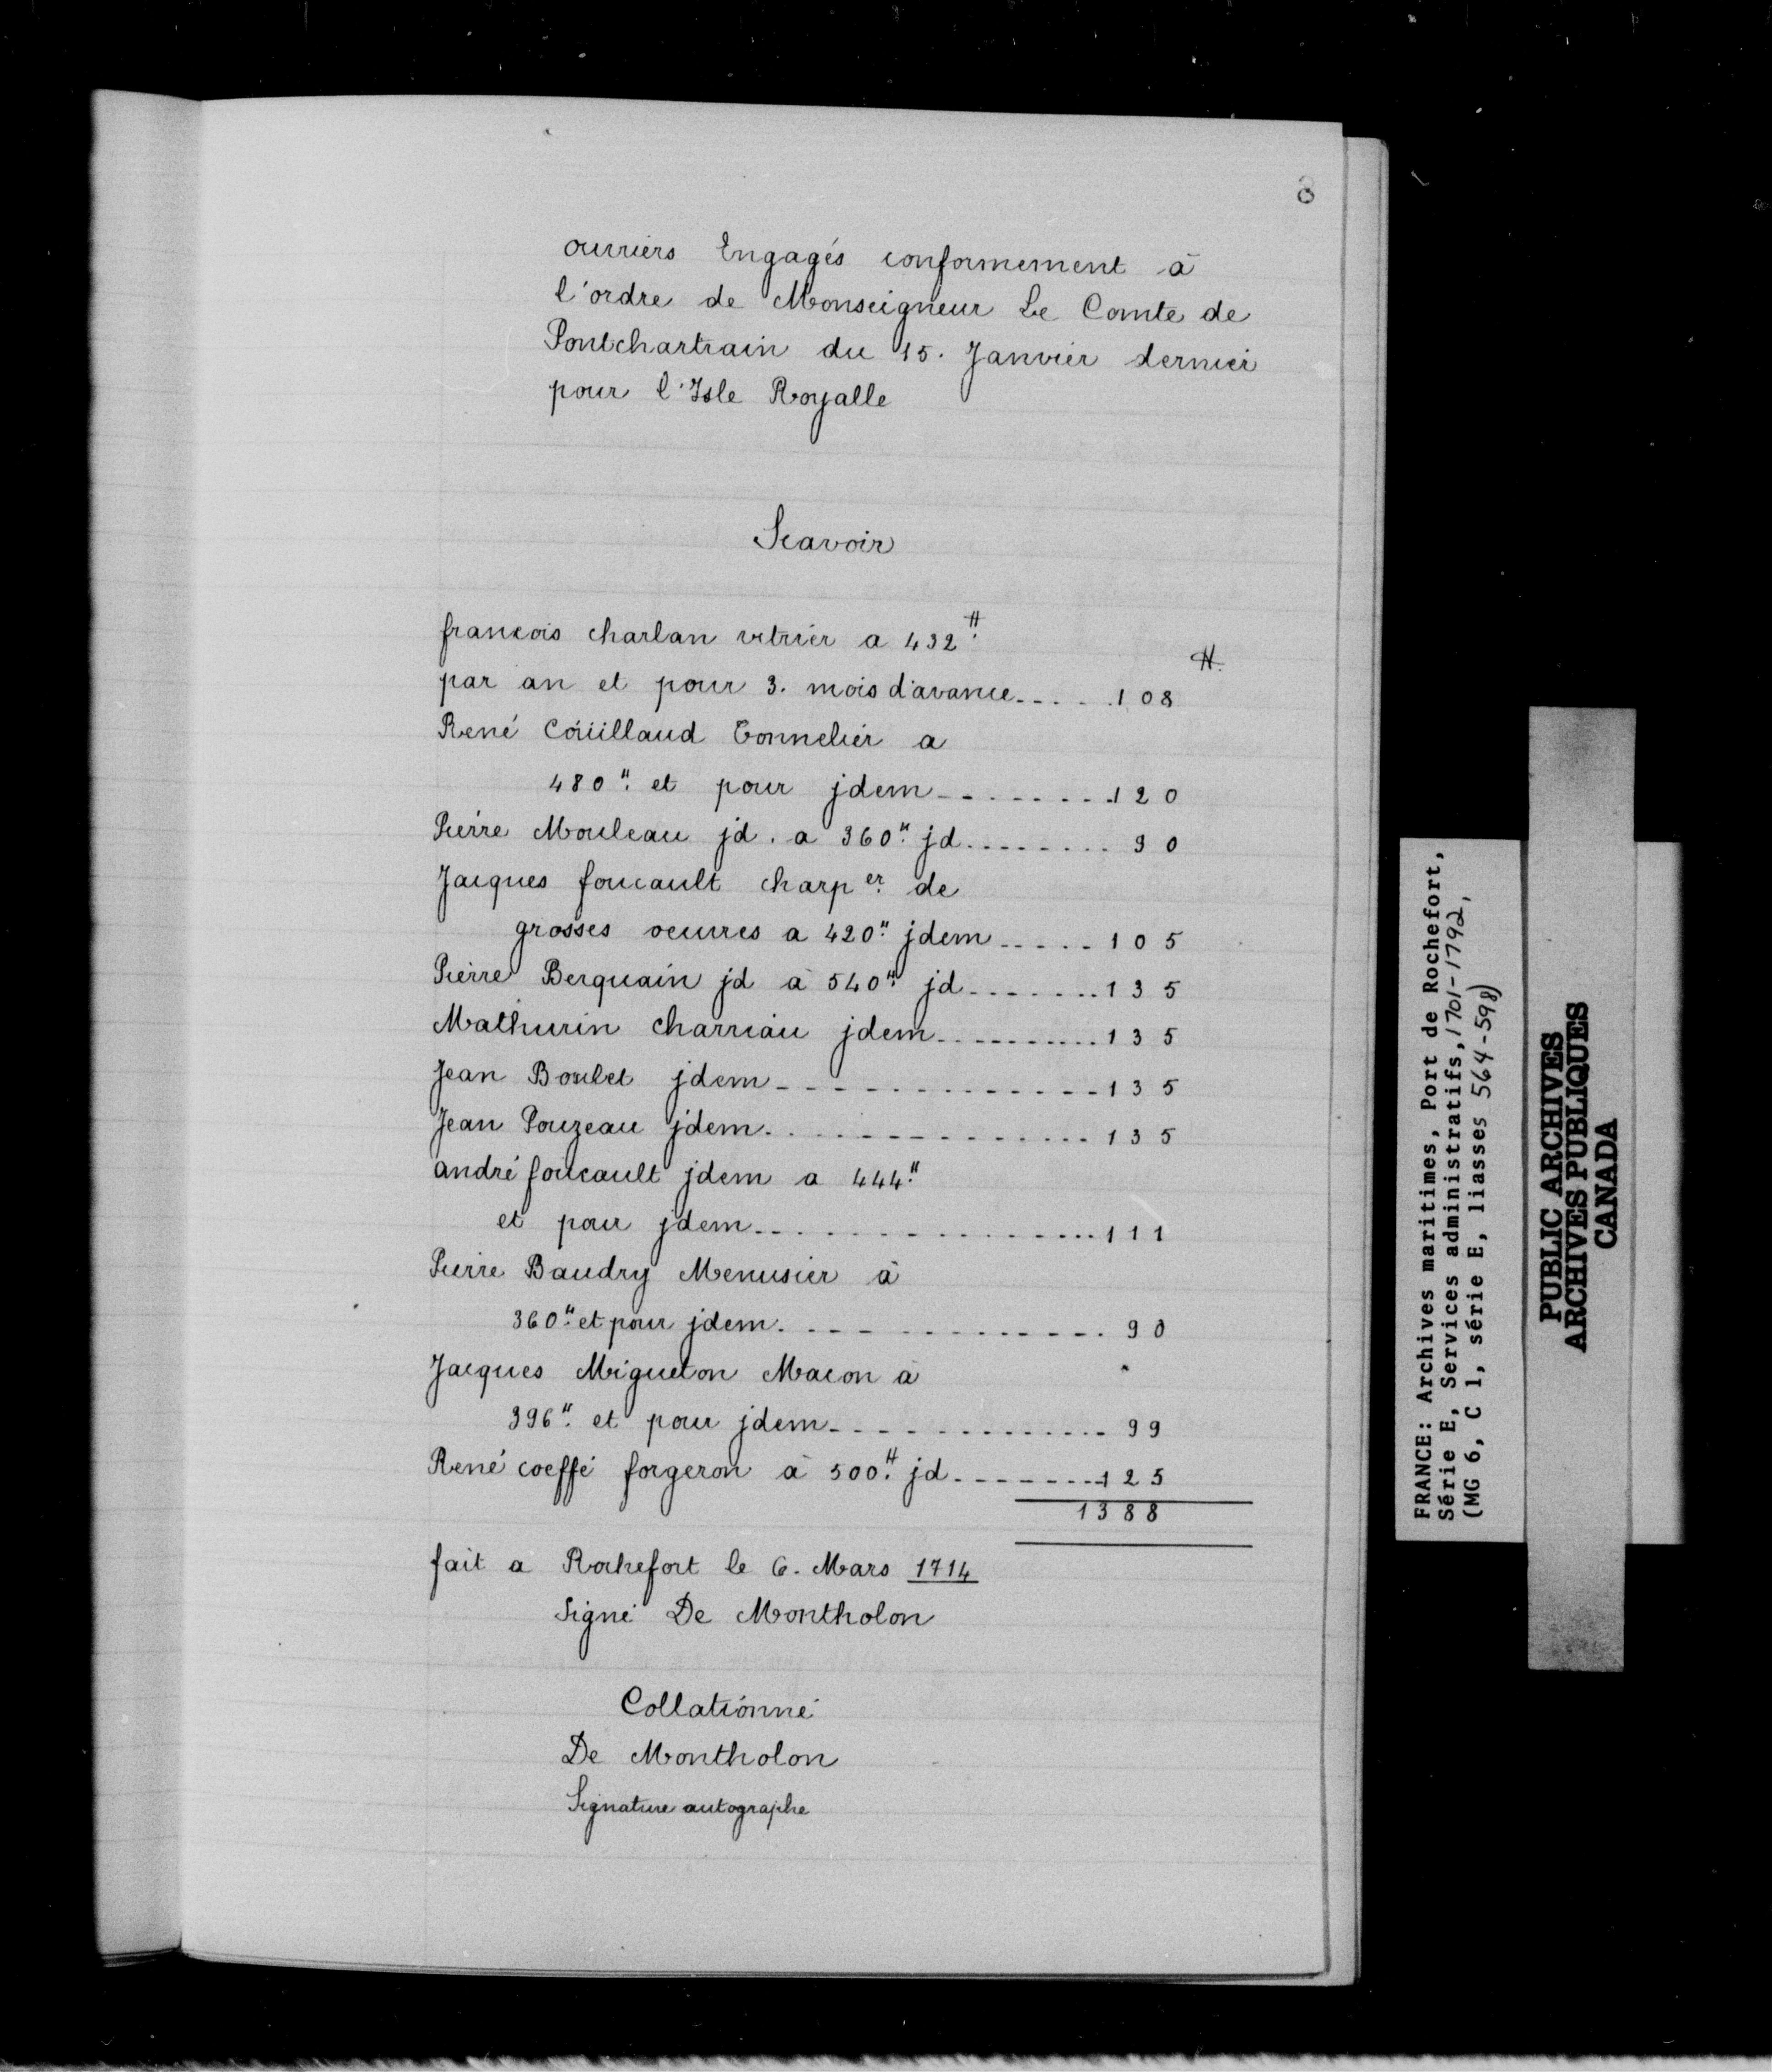 8
ouvriers Engagés conformement à
l'ordre de Monseigneur Le Comte de
Pontchartrain du 15. Janvier dernier
pour l'Isle Royalle
Scavoir
francois charlan vitrier a 432 �#
#
par an et pour 3. mois d'avance.....108
René Coüillaud Tonnelier a
480". et pour jdem........120
Pierre Mouleau jd. a 360". jd........90
Jacques foucault charp er. de
grosses oeuvres a 420". jdem.....105
Pierre Berquain jd à 540". jd.......135
Mathurin charriau jdem..........135
Jean Boulet jdem.............135
Jean Pouzeau jdem..............135
andré foucault jdem a 444".
et pour jdem................111
Pierre Baudry Menusier à
360". et pour jdem..............90
Jacques Migueton Macon à
396". et pour jdem.............99
René coeffé forgeron à 500". jd.......125
1388
fait a Rochefort le 6. Mars 1714
Signé De Montholon
Collationné
De Montholon
Signature autographe
FRANCE: Archives maritimes, Port de Rochefort,
Série E, Services administratifs, 1701-1792,
(MG 6, C 1, série E, liasses 564-598)
PUBLIC ARCHIVES
ARCHIVES PUBLIQUES
CANADA